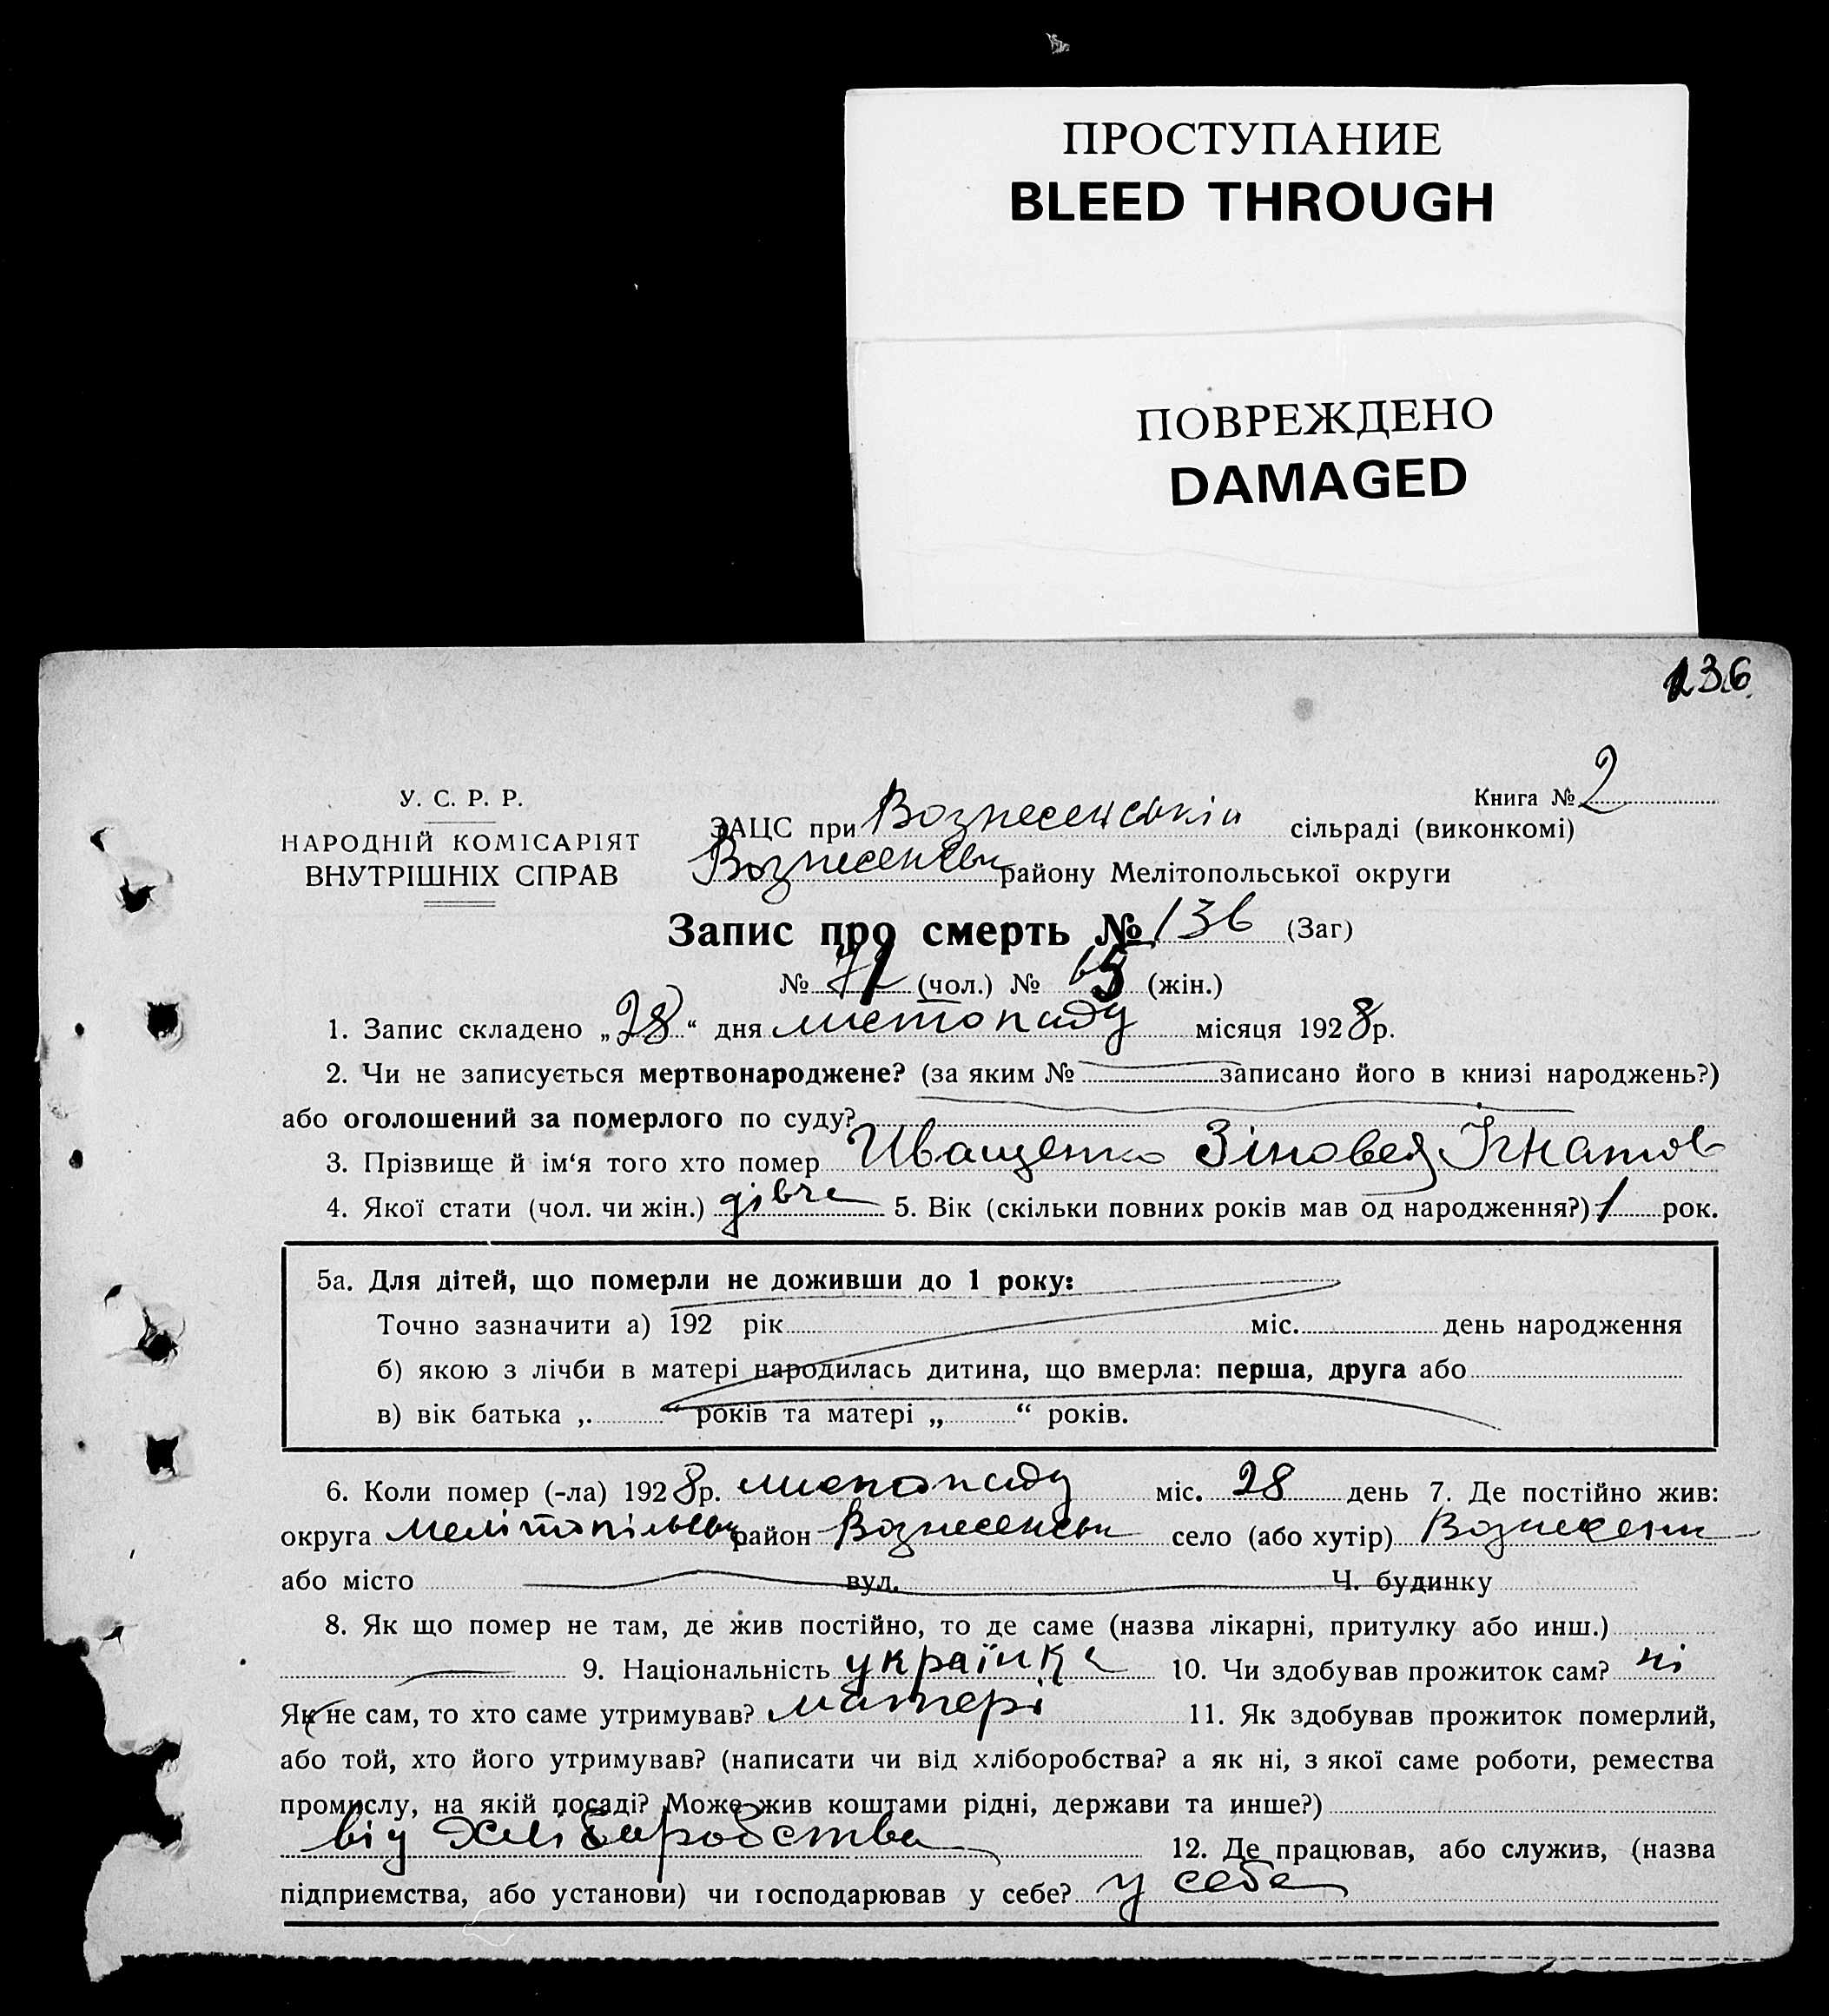 ПРОСТУПАНИЕ
BLEED THROUGH
ПОВРЕЖДЕНО
DAMAGED
136.
У. С. Р. Р.
НАРОДНІЙ КОМІСАРІЯТ
ВНУТРІШНІХ СПРАВ
Книга № 2
ЗАЦС при Вознесенській сільраді (виконкомі)
Вознесенськ району Мелітопольської округи
Запис про смерть № 136 (Заг)
№ 71 (чол.) № 65 (жін.)
1. Запис складено „28“ дня листопаду місяця 1928р.
2. Чи не записується мертвонароджене? (за яким № записано його в книзі народжень?)
або оголошений за померлого по суду?
3. Прізвище й ім‘я того хто помер Иващенко Зіновея Ігнатов
4. Якої стати (чол. чи жін.) дівча 5. Вік (скільки повних років мав од народження?) 1 рок.
5а. Для дітей, що померли не доживши до 1 року:
Точно зазначити а) 192 рік міс. день народження
б) якою з лічби в матері народилась дитина, що вмерла: перша, друга або
в) вік батька „ “ років та матері „ “ років.
6. Коли помер (-ла) 1928р. листопаду міс. 28 день 7. Де постійно жив:
округа Мелітопільськ район Вознесенськ село (або хутір) Вознесенк
або місто вул. Ч. будинку
8. Як що помер не там, де жив постійно, то де саме (назва лікарні, притулку або инш.)
9. Національність українка 10. Чи здобував прожиток сам? ні
Як не сам, то хто саме утримував? матері 11. Як здобував прожиток померлий,
або той, хто його утримував? (написати чи від хліборобства? а як ні, з якої саме роботи, ремества
промислу, на якій посаді? Може жив коштами рідні, держави та инше?)
від хліборобства 12. Де працював, або служив, (назва
підприємства, або установи) чи господарював у себе? у себе